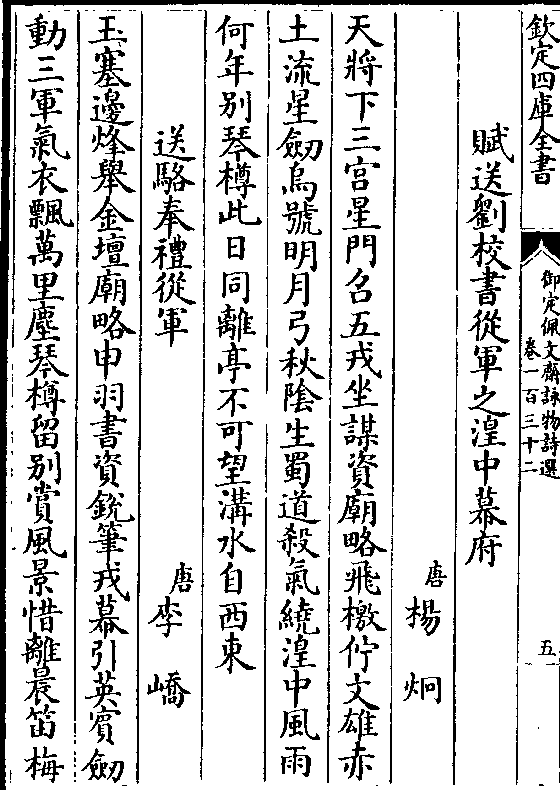 欽定四庫全書
御定佩文齋詠物詩選
卷一百三十二
五
賦送劉校書從軍之湟中幕府
唐楊炯
天將下三宮星門召五戎坐謀資廟略飛檄佇文雄赤
土流星劒烏號明月弓秋陰生蜀道殺氣繞湟中風雨
何年别琴樽此日同離亭不可望溝水自西東
送駱奉禮從軍
唐李嶠
玉塞邊烽舉金壇廟略申羽書資銳筆戎幕引英賓劒
動三軍氣衣飄萬里塵琴樽留别賞風景惜離晨笛梅